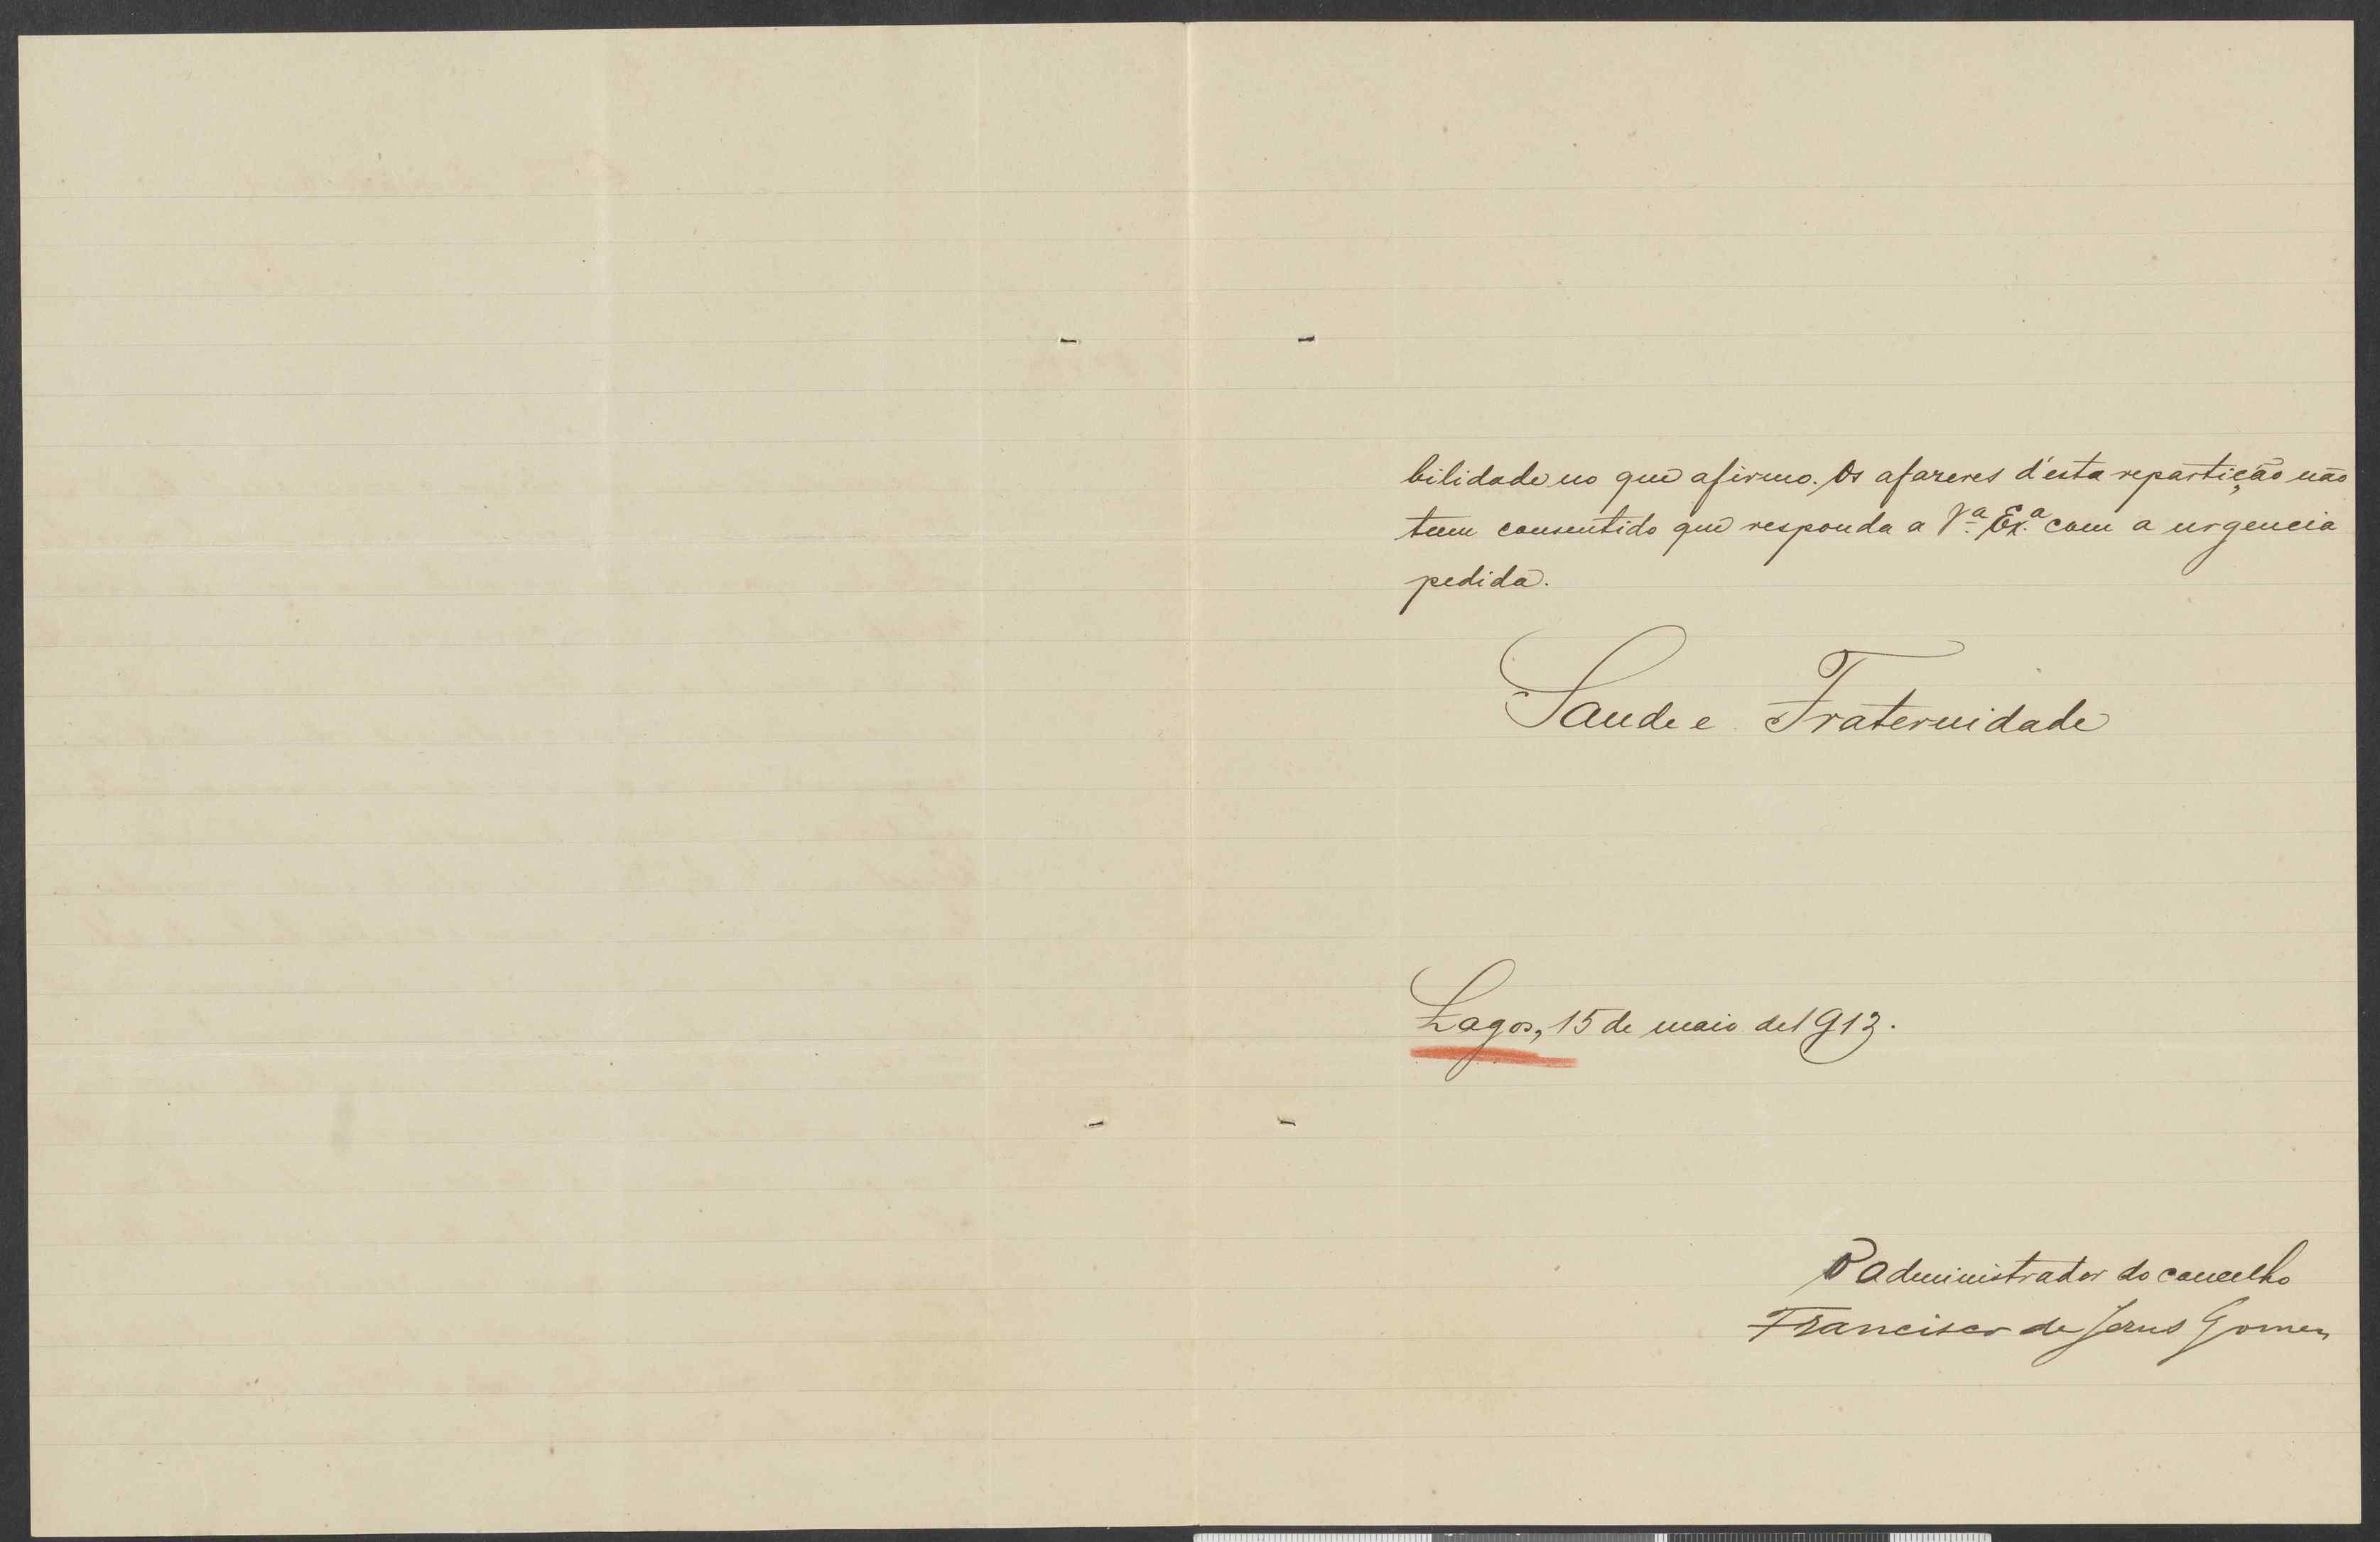 bilidade no que afirmo. Os afazeres d'esta repartição não
teem consentido que responda a Vª Exª com a urgencia
pedida.
Saude e Fraternidade
Lagos, 15 de maio de 1913.
O administrador do concelho
Francisco de Jesus Gomes